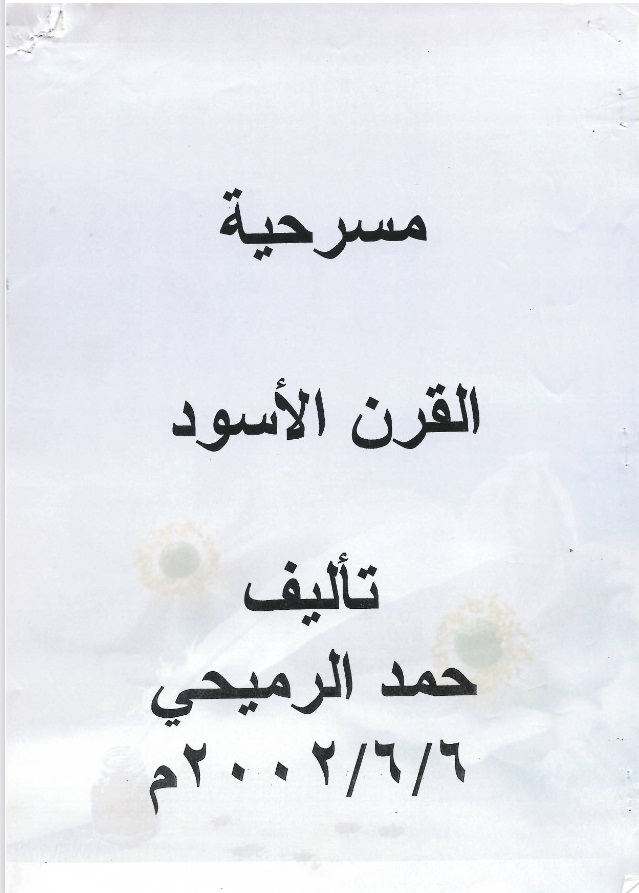 مسرحية
القرن الأسود
تأليف
حمد الرميحي
٢٠٠٢/٦/٦م